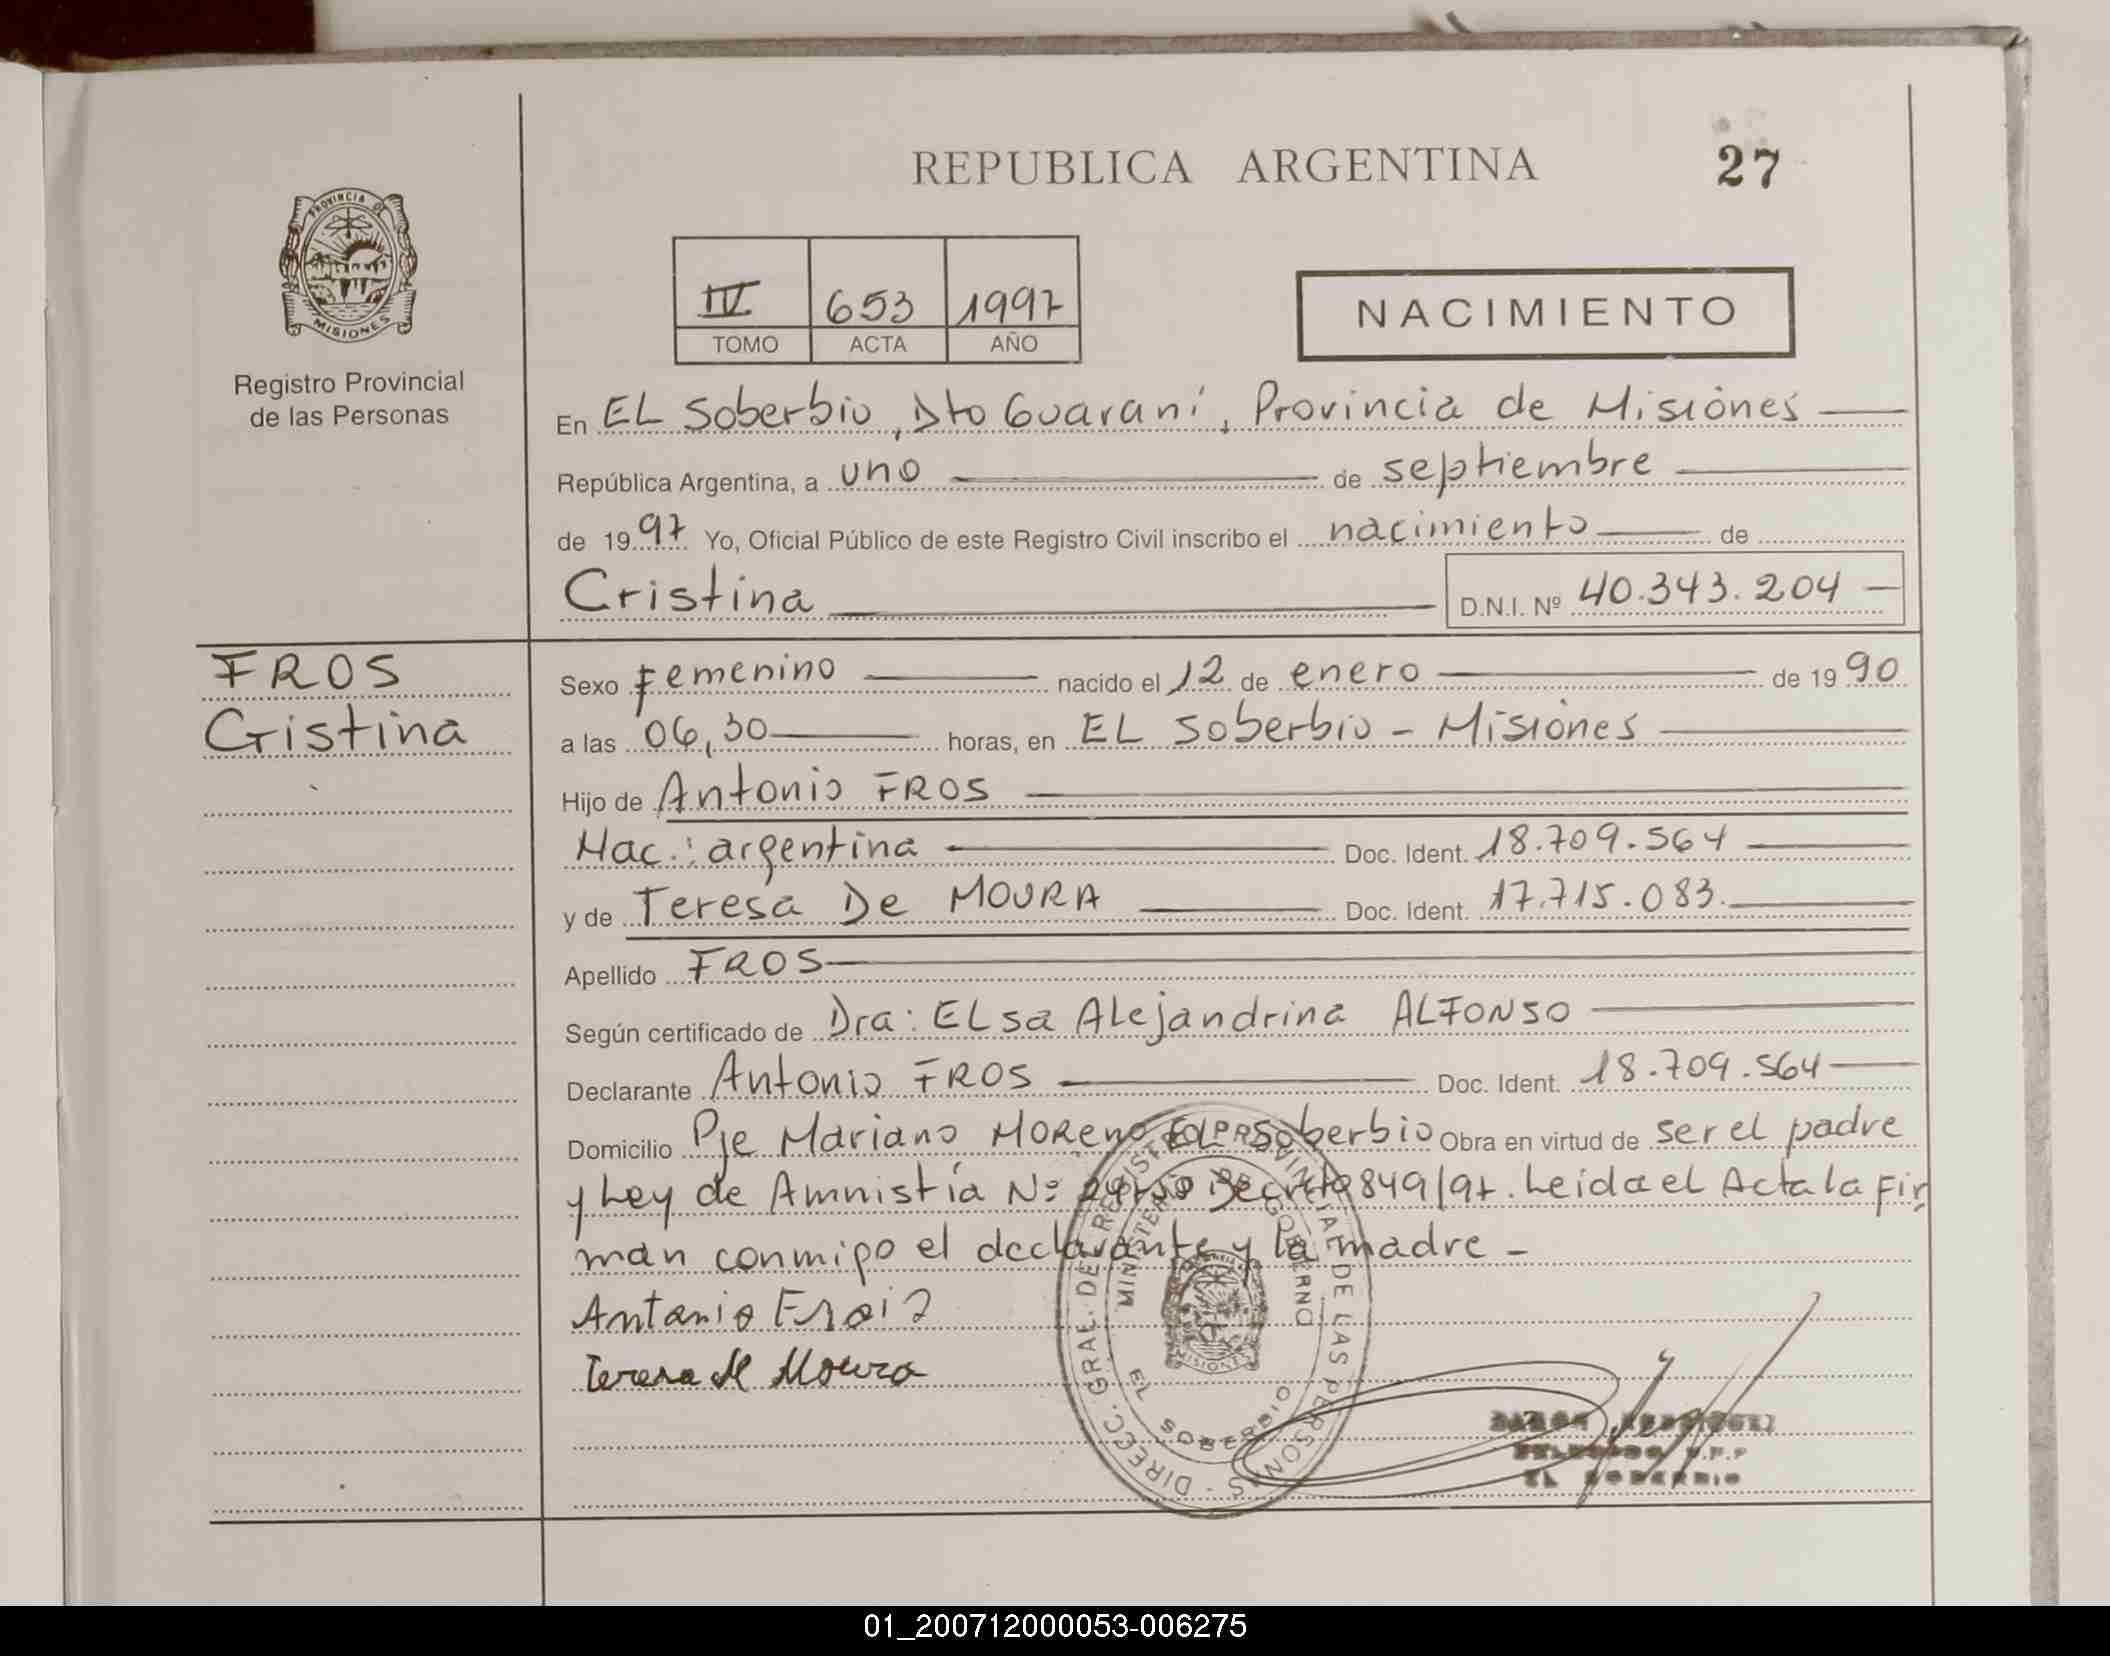 REPUBLICA ARGENTINA
27
PROVINCIA DE
MISIONES
Registro Provincial
de las Personas
IV 653 1997
TOMO ACTA AÑO
NACIMIENTO
En EL Soberbio, Dto Guaraní, Provincia de Misiones
República Argentina, a uno de septiembre
de 1997 Yo, Oficial Público de este Registro Civil inscribo el nacimiento de
Cristina D.N.I. Nº 40.343.204
FROS
Cristina
Sexo Femenino nacido el 12 de enero de 1990
a las 06,30 horas, en EL Soberbio - Misiones
Hijo de Antonio FROS
Nac.: argentina Doc. Ident. 18.709.564
y de Teresa De MOURA Doc. Ident. 17.715.083.
Apellido FROS
Según certificado de Dra: ELsa ALejandrina ALFONSO
Declarante Antonio FROS Doc. Ident. 18.709.564
Domicilio Pje Mariano MOReno EL Soberbio Obra en virtud de ser el padre
y Ley de Amnistía Nº Decreto 849/97. Leída el Acta la fir
man conmigo el declarante y la madre -
Antonio
Teresa Moura
DIRECC. GRAL. DE REGISTRO PROVINCIAL DE LAS PERSONAS
MINISTERIO DE GOBIERNO
MISIONES
EL SOBERBIO
EL SOBERBIO
01_200712000053-006275